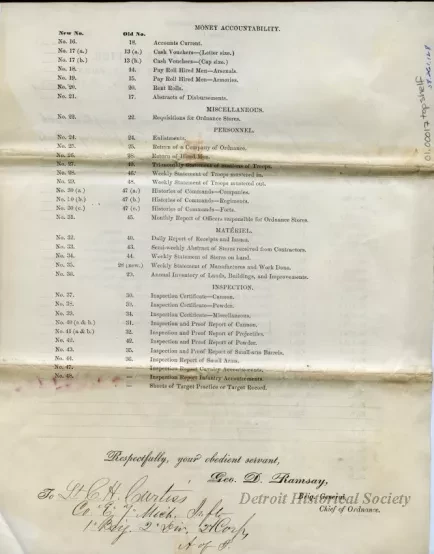 MONEY ACCOUNTABILITY.
New No. Old No.
No. 16. 18. Accounts Current.
No. 17 (a.) 13 (a.) Cash Vouchers—(Letter size.)
No. 17 (b.) 13 (b.) Cash Vouchers—(Cap size.)
No. 18. 14. Pay Roll Hired Men—Arsenals.
No. 19. 15. Pay Roll Hired Men—Armories.
No. 20. 20. Rent Rolls.
No. 21. 17. Abstracts of Disbursements.
MISCELLANEOUS.
No. 22. 22. Requisitions for Ordnance Stores.
PERSONNEL.
No. 24. 24. Enlistments.
No. 25. 25. Return of a Company of Ordnance.
No. 26. 28. Return of Hired Men.
No. 27. 46. Statement of Troops.
No. 28. 48. Weekly Statement of Troops mustered in.
No. 29. 48. Weekly Statement of Troops mustered out.
No. 30 (a.) 47 (a.) Histories of Commands—Companies.
(b.) 47 (b.) Histories of Commands—Regiments.
No. 30 (c.) 47 (c.) Histories of Commands—Forts.
45. Monthly Report of Officers responsible for Ordnance Stores.
MATÉRIEL.
No. 32. 40. Daily Report of Receipts and Issues.
No. 33. 43. Semi-weekly Abstract of Stores received from Contractors.
No. 34. 44. Weekly Statement of Stores on hand.
No. 35. 26 (new.) Weekly Statement of Manufactures and Work Done.
No. 36. 29. Annual Inventory of Lands, Buildings, and Improvements.
INSPECTION.
No. 37. 30. Inspection Certificate—Cannon.
No. 38. 30. Inspection Certificate—Powder.
No. 39. 34. Inspection Certificate—Miscellaneous.
No. 40 (a & b.) 31. Inspection and Proof Report of Cannon.
No. 41 (a & b.) 32. Inspection and Proof Report of Projectiles.
No. 42. Inspection and Proof Report of Powder.
No. 43. 35. Inspection and Proof Report of Small-arm Barrels.
36. Inspection Report of Small Arms.
No. 47. — Inspection Report Cavalry Accoutrements.
No. 48. — Inspection Report Infantry Accoutrements.
— Sheets of Target Practice or Target Record.
Respectfully, your obedient servant,
Geo. D. Ramsay,
Brig. General,
Chief of Ordnance.
To Lt C. H. Curtiss
Co "E" 7" Mich. Infty
1" Brig. 2" Div. 2d Corps
A of P.
Detroit Historical Society
top shelf